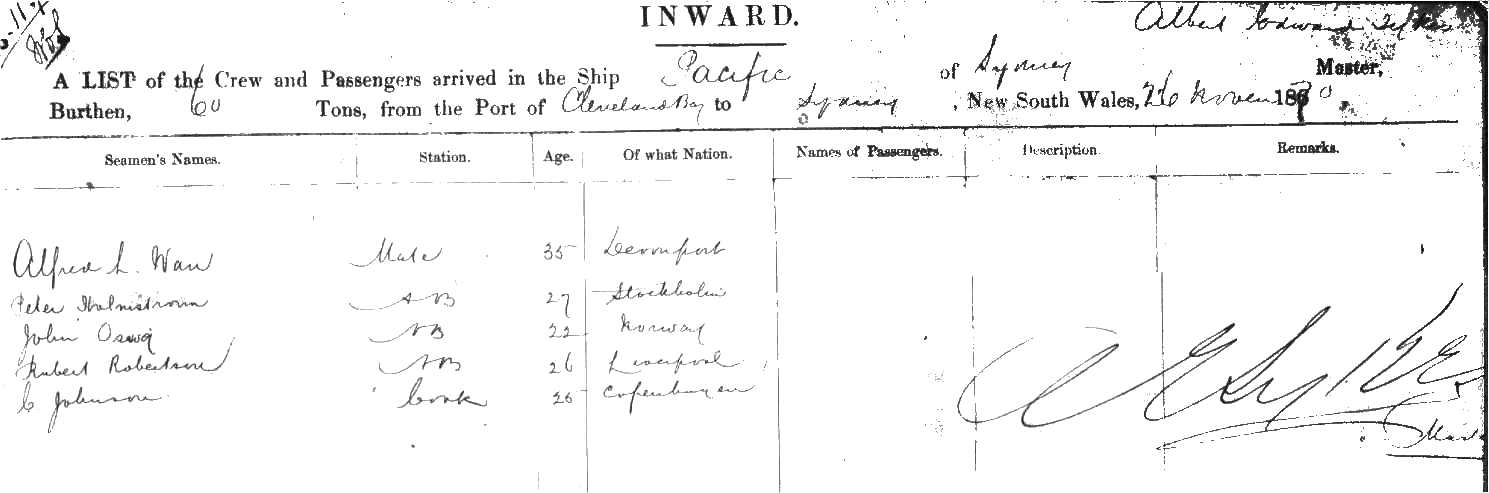 INWARD.
Albert Edward Sykes
A LIST of the Crew and Passengers arrived in the Ship Pacific of Sydney Master,
Burthen, 60 Tons, from the Port of Cleveland Bay to Sydney , New South Wales, 26 Novem 18
Seamen's Names. Station. Age. Of what Nation. Names of Passengers. Description. Remarks.
Alfred L. Mate 35 Devonport
Peter Holmstrom AB 27 Stockholm
John AB 22 Norway
Robert Robertson AB 26 Liverpool
C Johnson Cook 26 Copenhagen
A E Sykes